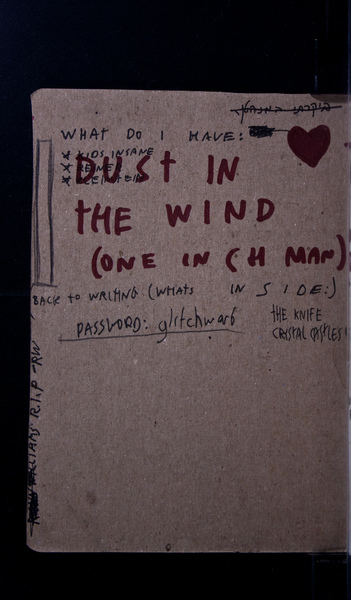 WHAT DO I HAVE:
* KIDS INSANE
DUST IN
THE WIND
(ONE INCH MAN)
BACK TO WRITING (WHATS IN SIDE:)
PASSWORD: glitchwarb
THE KNIFE
CRISTAL CASTLES
WILLIAMS R.I.P -RW